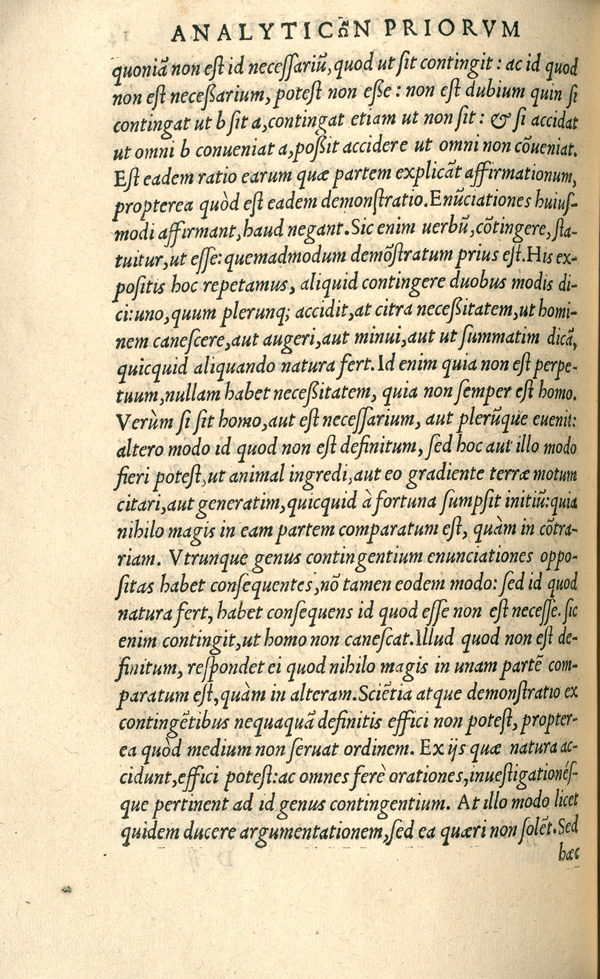 ANALYTICω̃N PRIORVM
quoniā non eſt id neceſſariū, quod ut ſit contingit : ac id quod
non eſt neceßarium, poteſt non eße : non eſt dubium quin ſi
contingat ut b ſit a,contingat etiam ut non ſit : & ſi accidat
ut omni b conueniat a,poßit accidere ut omni non cōueniat.
Eſt eadem ratio earum quæ partem explicāt affirmationum,
propterea quòd eſt eadem demonſtratio.Enūciationes huiuſ-
modi affirmant,haud negant.Sic enim uerbū,cōtingere,ſta-
tuitur,ut eſſe: quemadmodum demōſtratum prius eſt.His ex-
poſitis hoc repetamus, aliquid contingere duobus modis di-
ci: uno,quum plerunq; accidit,at citra neceßitatem,ut homi-
nem caneſcere,aut augeri,aut minui,aut ut ſummatim dicā,
quicquid aliquando natura fert. Id enim quia non eſt perpe-
tuum,nullam habet neceßitatem, quia non ſemper eſt homo.
Verùm ſi ſit homo,aut eſt neceſſarium, aut plerūque euenit:
altero modo id quod non eſt definitum, ſed hoc aut illo modo
fieri poteſt,ut animal ingredi,aut eo gradiente terræ motum
citari,aut generatim,quicquid à fortuna ſumpſit initiū:quia
nihilo magis in eam partem comparatum eſt, quàm in cōtra-
riam. Vtrunque genus contingentium enunciationes oppo-
ſitas habet conſequentes,nō tamen eodem modo: ſed id quod
natura fert, habet conſequens id quod eſſe non eſt neceſſe. ſic
enim contingit,ut homo non caneſcat.Illud quod non eſt de-
finitum, reſpondet ei quod nihilo magis in unam partē com-
paratum eſt,quàm in alteram.Sciētia atque demonſtratio ex
contingētibus nequaquā definitis effici non poteſt, propter-
ea quòd medium non ſeruat ordinem. Ex ijs quæ natura ac-
cidunt,effici poteſt:ac omnes ferè orationes,inueſtigationéſ-
que pertinent ad id genus contingentium. At illo modo licet
quidem ducere argumentationem,ſed ea quæri non ſolēt.Sed
hæc